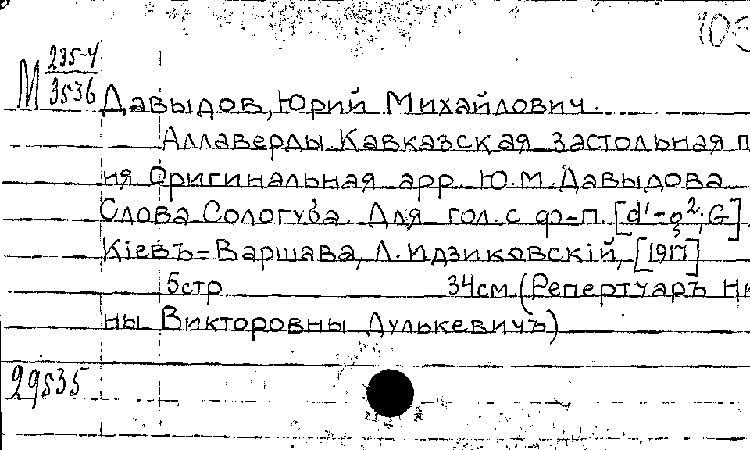 105
М 235-4
3536
Давыдов, Юрий Михайлович.
Аллаверды Кавказская застольная п
ня Оригинальная арр. Ю.М. Давыдова
Слова Сологуба. Для гол. с ф-п. [d'-g²; G]
Кіевъ=Варшава, Л. Идзиковскій,
5 стр 34 см. (Репертуаръ Ни
ны Викторовны Дулькевичъ)
29535